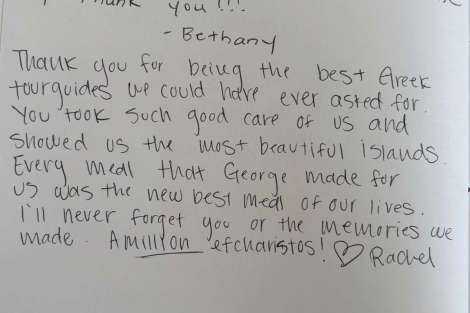 Thank you!!!
- Bethany
Thank you for being the best Greek
tourguides we could have ever asked for.
You took such good care of us and
showed us the most beautiful islands.
Every meal that George made for
us was the new best meal of our lives.
I'll never forget you or the memories we
made. A million efcharistos! ♡ Rachel